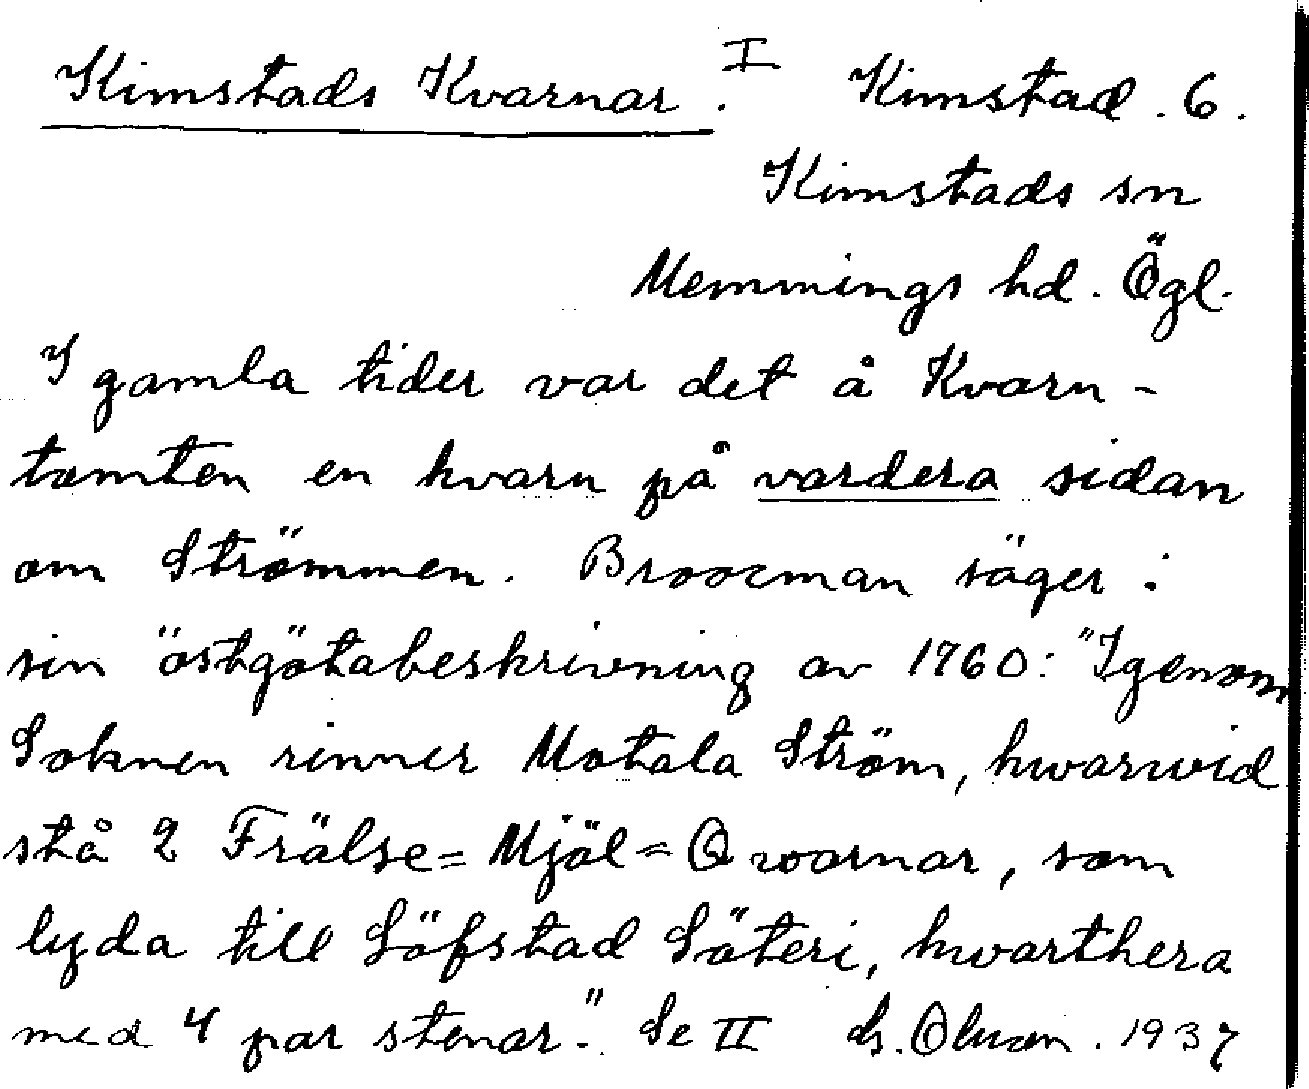 Kimstads Kvarnar. I Kimstad. 6.
Kimstads sn
Memmings hd. Ögl.
I gamla tider var det å Kvarn-
tomten en kvarn på vardera sidan
om Strömmen. Broocman säger i
sin östgötabeskrivning av 1760: "Igenom
Soknen rinner Motala Ström, hwarwid
stå 2 Frälse= Mjöl= Qwarnar, som
lyda till Löfstad Säteri, hwarthera
med 4 par stenar." Se II 1937